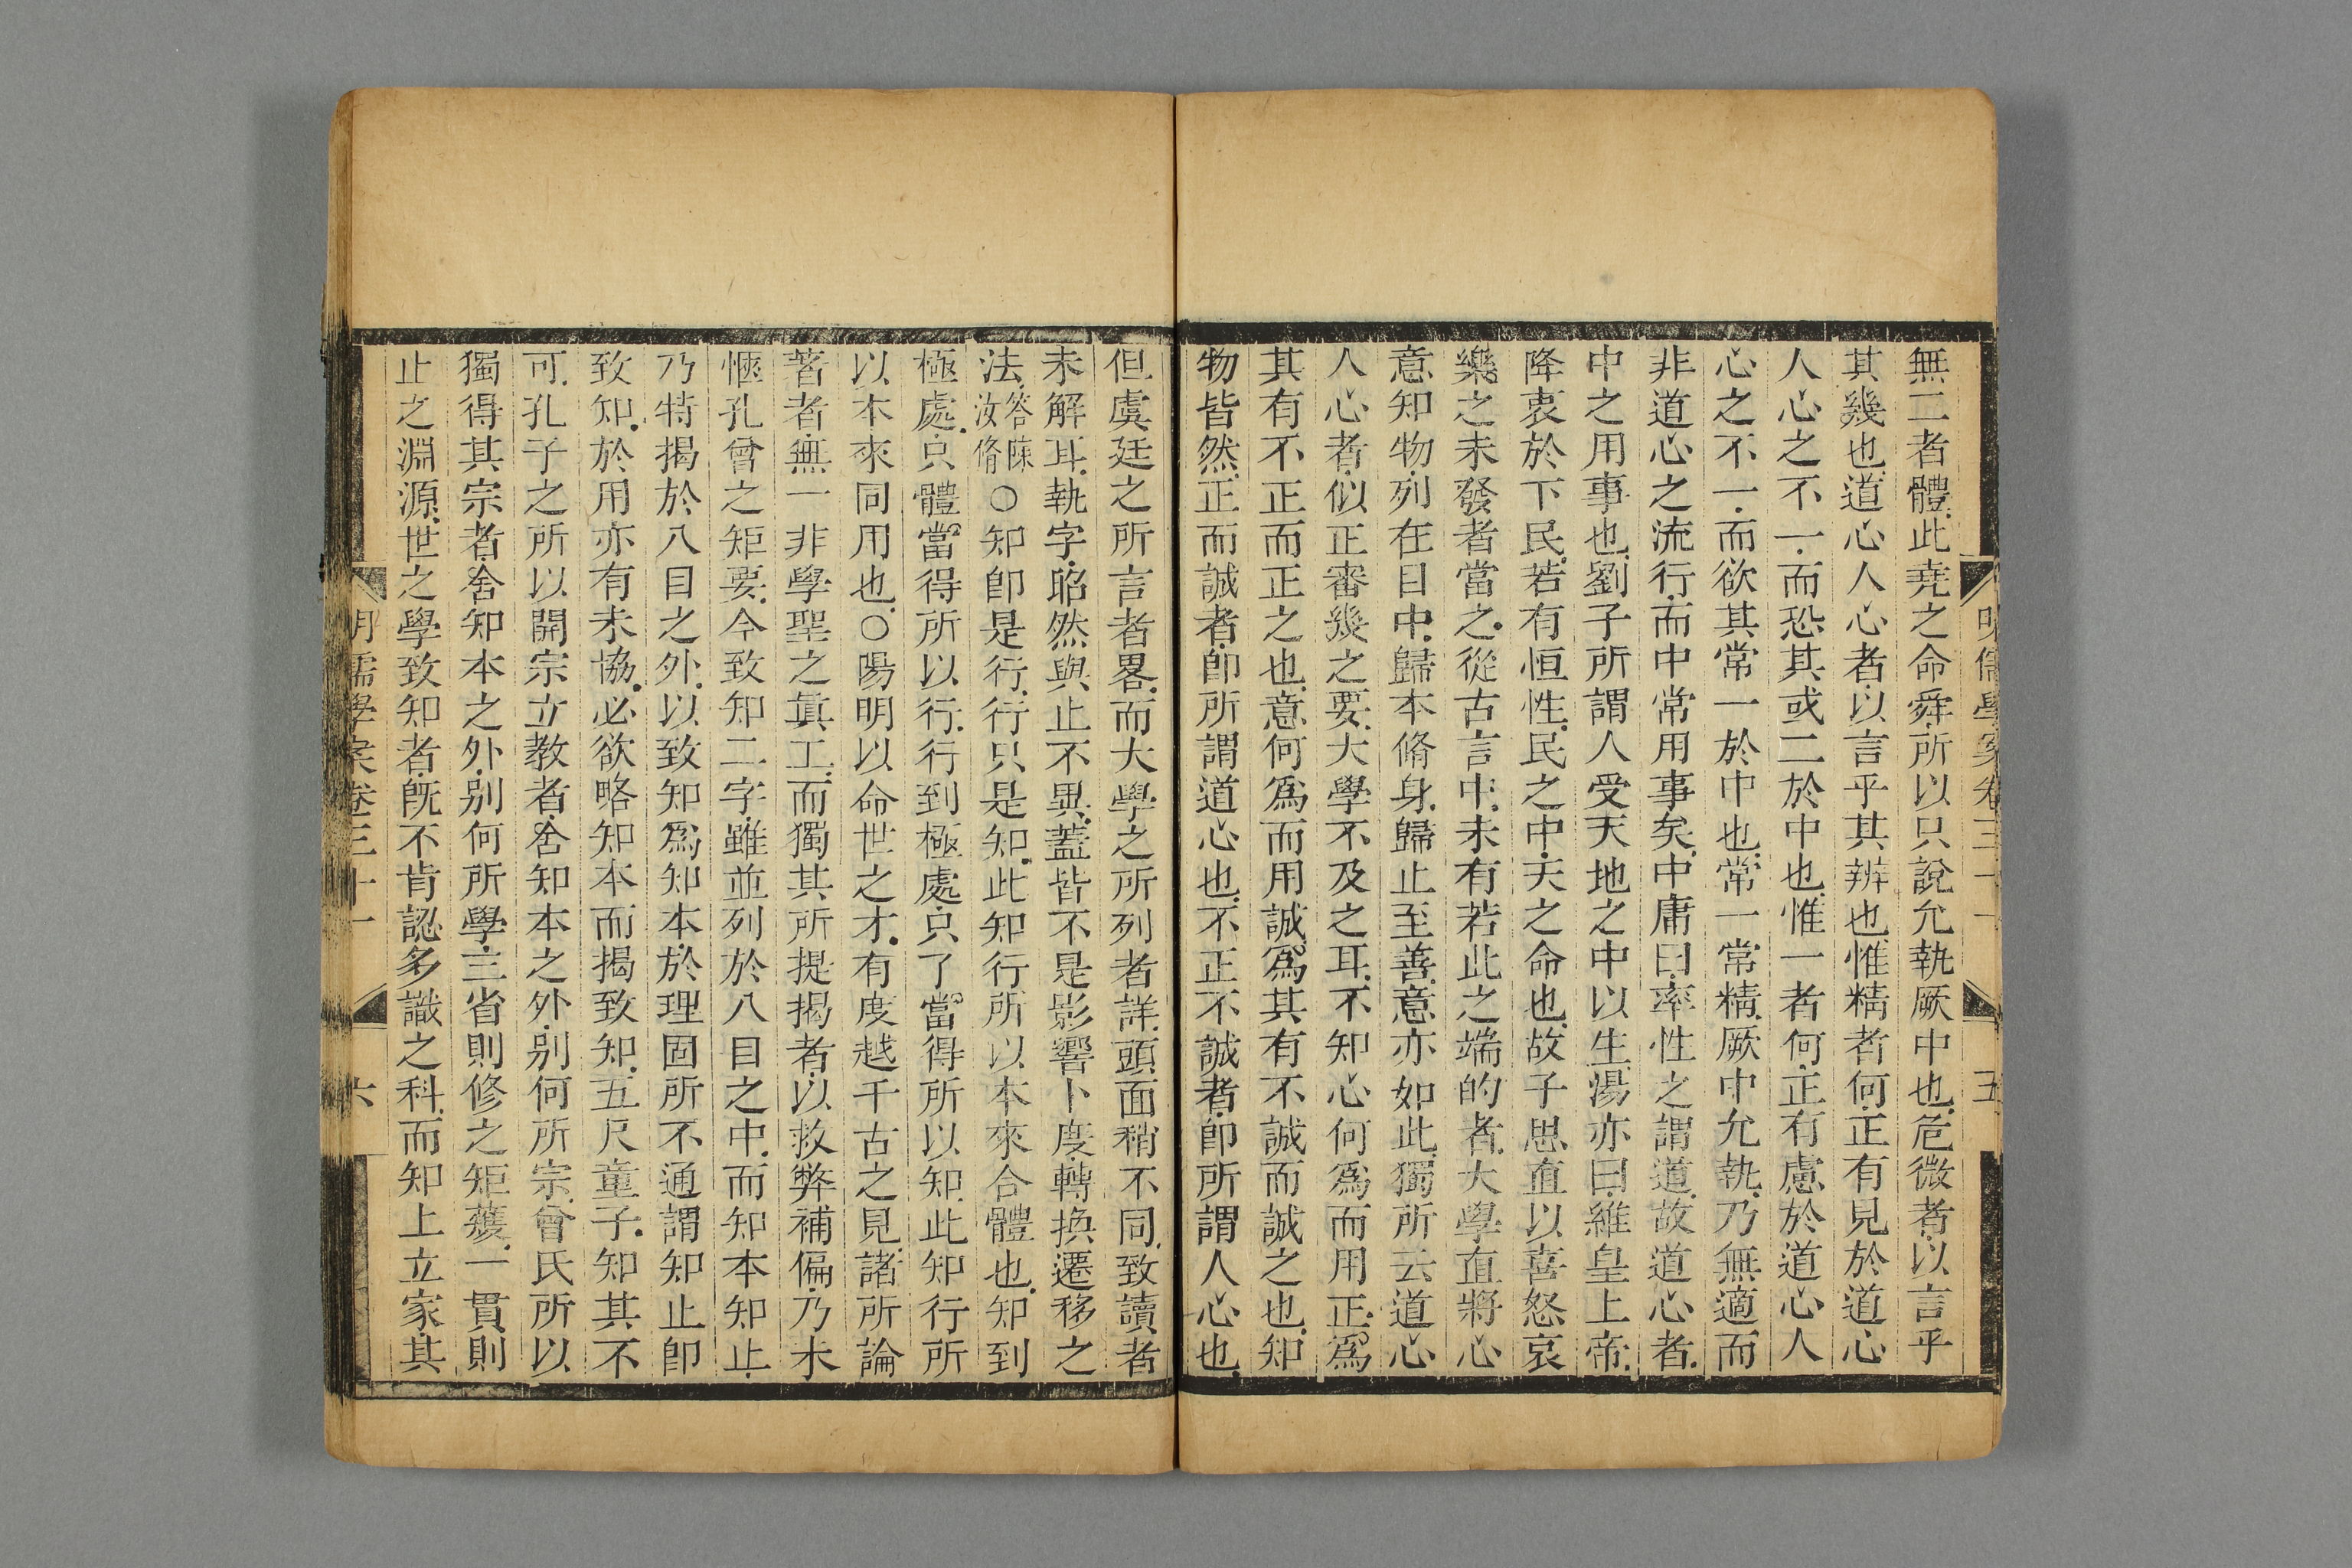 明儒學案卷三十一
五
無二者體此堯之命舜所以只說允執厥中也危微者以言乎
其幾也道心人心者以言乎其辨也惟精者何正有見於道心
人心之不一而恐其或二於中也惟一者何正有慮於道心人
心之不一而欲其常一於中也常一常精厥中允執乃無適而
非道心之流行而中常用事矣中庸曰率性之謂道故道心者
中之用事也劉子所謂人受天地之中以生湯亦曰維皇上帝
降衷於下民若有恒性民之中天之命也故子思直以喜怒哀
樂之未發者當之從古言中未有若此之端的者大學直將心
意知物列在目中歸本脩身歸止至善意亦如此獨所云道心
人心者似正審幾之要大學不及之耳不知心何爲而用正爲
其有不正而正之也意何爲而用誠爲其有不誠而誠之也知
物皆然正而誠者卽所謂道心也不正不誠者卽所謂人心也
但虞廷之所言者畧而大學之所列者詳頭面稍不同致讀者
未解耳執字昭然與止不異蓋皆不是影響卜度轉換遷移之
法答陳汝脩○知卽是行行只是知此知行所以本來合體也知到
極處只體當得所以行行到極處只了當得所以知此知行所
以本來同用也○陽明以命世之才有度越千古之見諸所論
著者無一非學聖之眞工而獨其所提揭者以救弊補偏乃未
愜孔曾之矩要今致知二字雖並列於八目之中而知本知止
乃特揭於八目之外以致知爲知本於理固所不通謂知止卽
致知於用亦有未協必欲略知本而揭致知五尺童子知其不
可孔子之所以開宗立教者舍知本之外別何所宗曾氏所以
獨得其宗者舍知本之外別何所學三省則修之矩蒦一貫則
止之淵源世之學致知者旣不肯認多識之科而知上立家其
明儒學案卷三十一
六